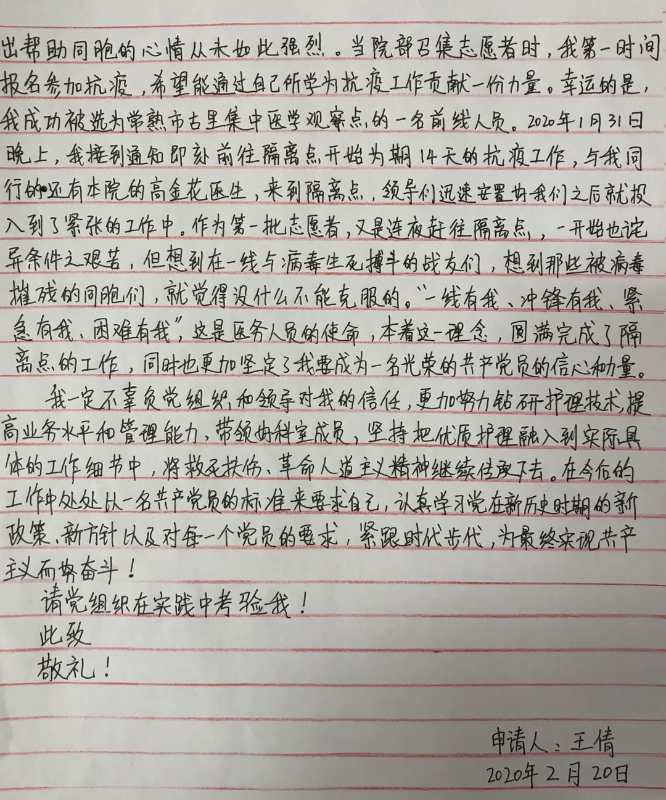 出帮助同胞的心情从未如此强烈。当院部召集志愿者时，我第一时间
报名参加抗疫，希望能通过自己所学为抗疫工作贡献一份力量。幸运的是，
我成功被选为常熟市古里集中医学观察点的一名前线人员。2020年1月31日
晚上，我接到通知即刻前往隔离点开始为期14天的抗疫工作，与我同
行的还有本院的高金花医生，来到隔离点，领导们迅速安置好我们之后就投
入到了紧张的工作中。作为第一批志愿者，又是连夜赶往隔离点，一开始也诧
异条件之艰苦，但想到在一线与病毒生死搏斗的战友们，想到那些被病毒
摧残的同胞们，就觉得没什么不能克服的。“一线有我、冲锋有我、紧
急有我、困难有我”，这是医务人员的使命，本着这一理念，圆满完成了隔
离点的工作，同时也更加坚定了我要成为一名光荣的共产党员的信心和力量。
我一定不辜负党组织和领导对我的信任，更加努力钻研护理技术，提
高业务水平和管理能力、带领好科室成员，坚持把优质护理融入到实际具
体的工作细节中，将救死扶伤、革命人道主义精神继续传承下去。在今后的
工作中处处以一名共产党员的标准来要求自己，认真学习党在新历史时期的新
政策、新方针以及对每一个党员的要求，紧跟时代步伐，为最终实现共产
主义而努奋斗！
请党组织在实践中考验我！
此致
敬礼！
申请人：王倩
2020年2月20日